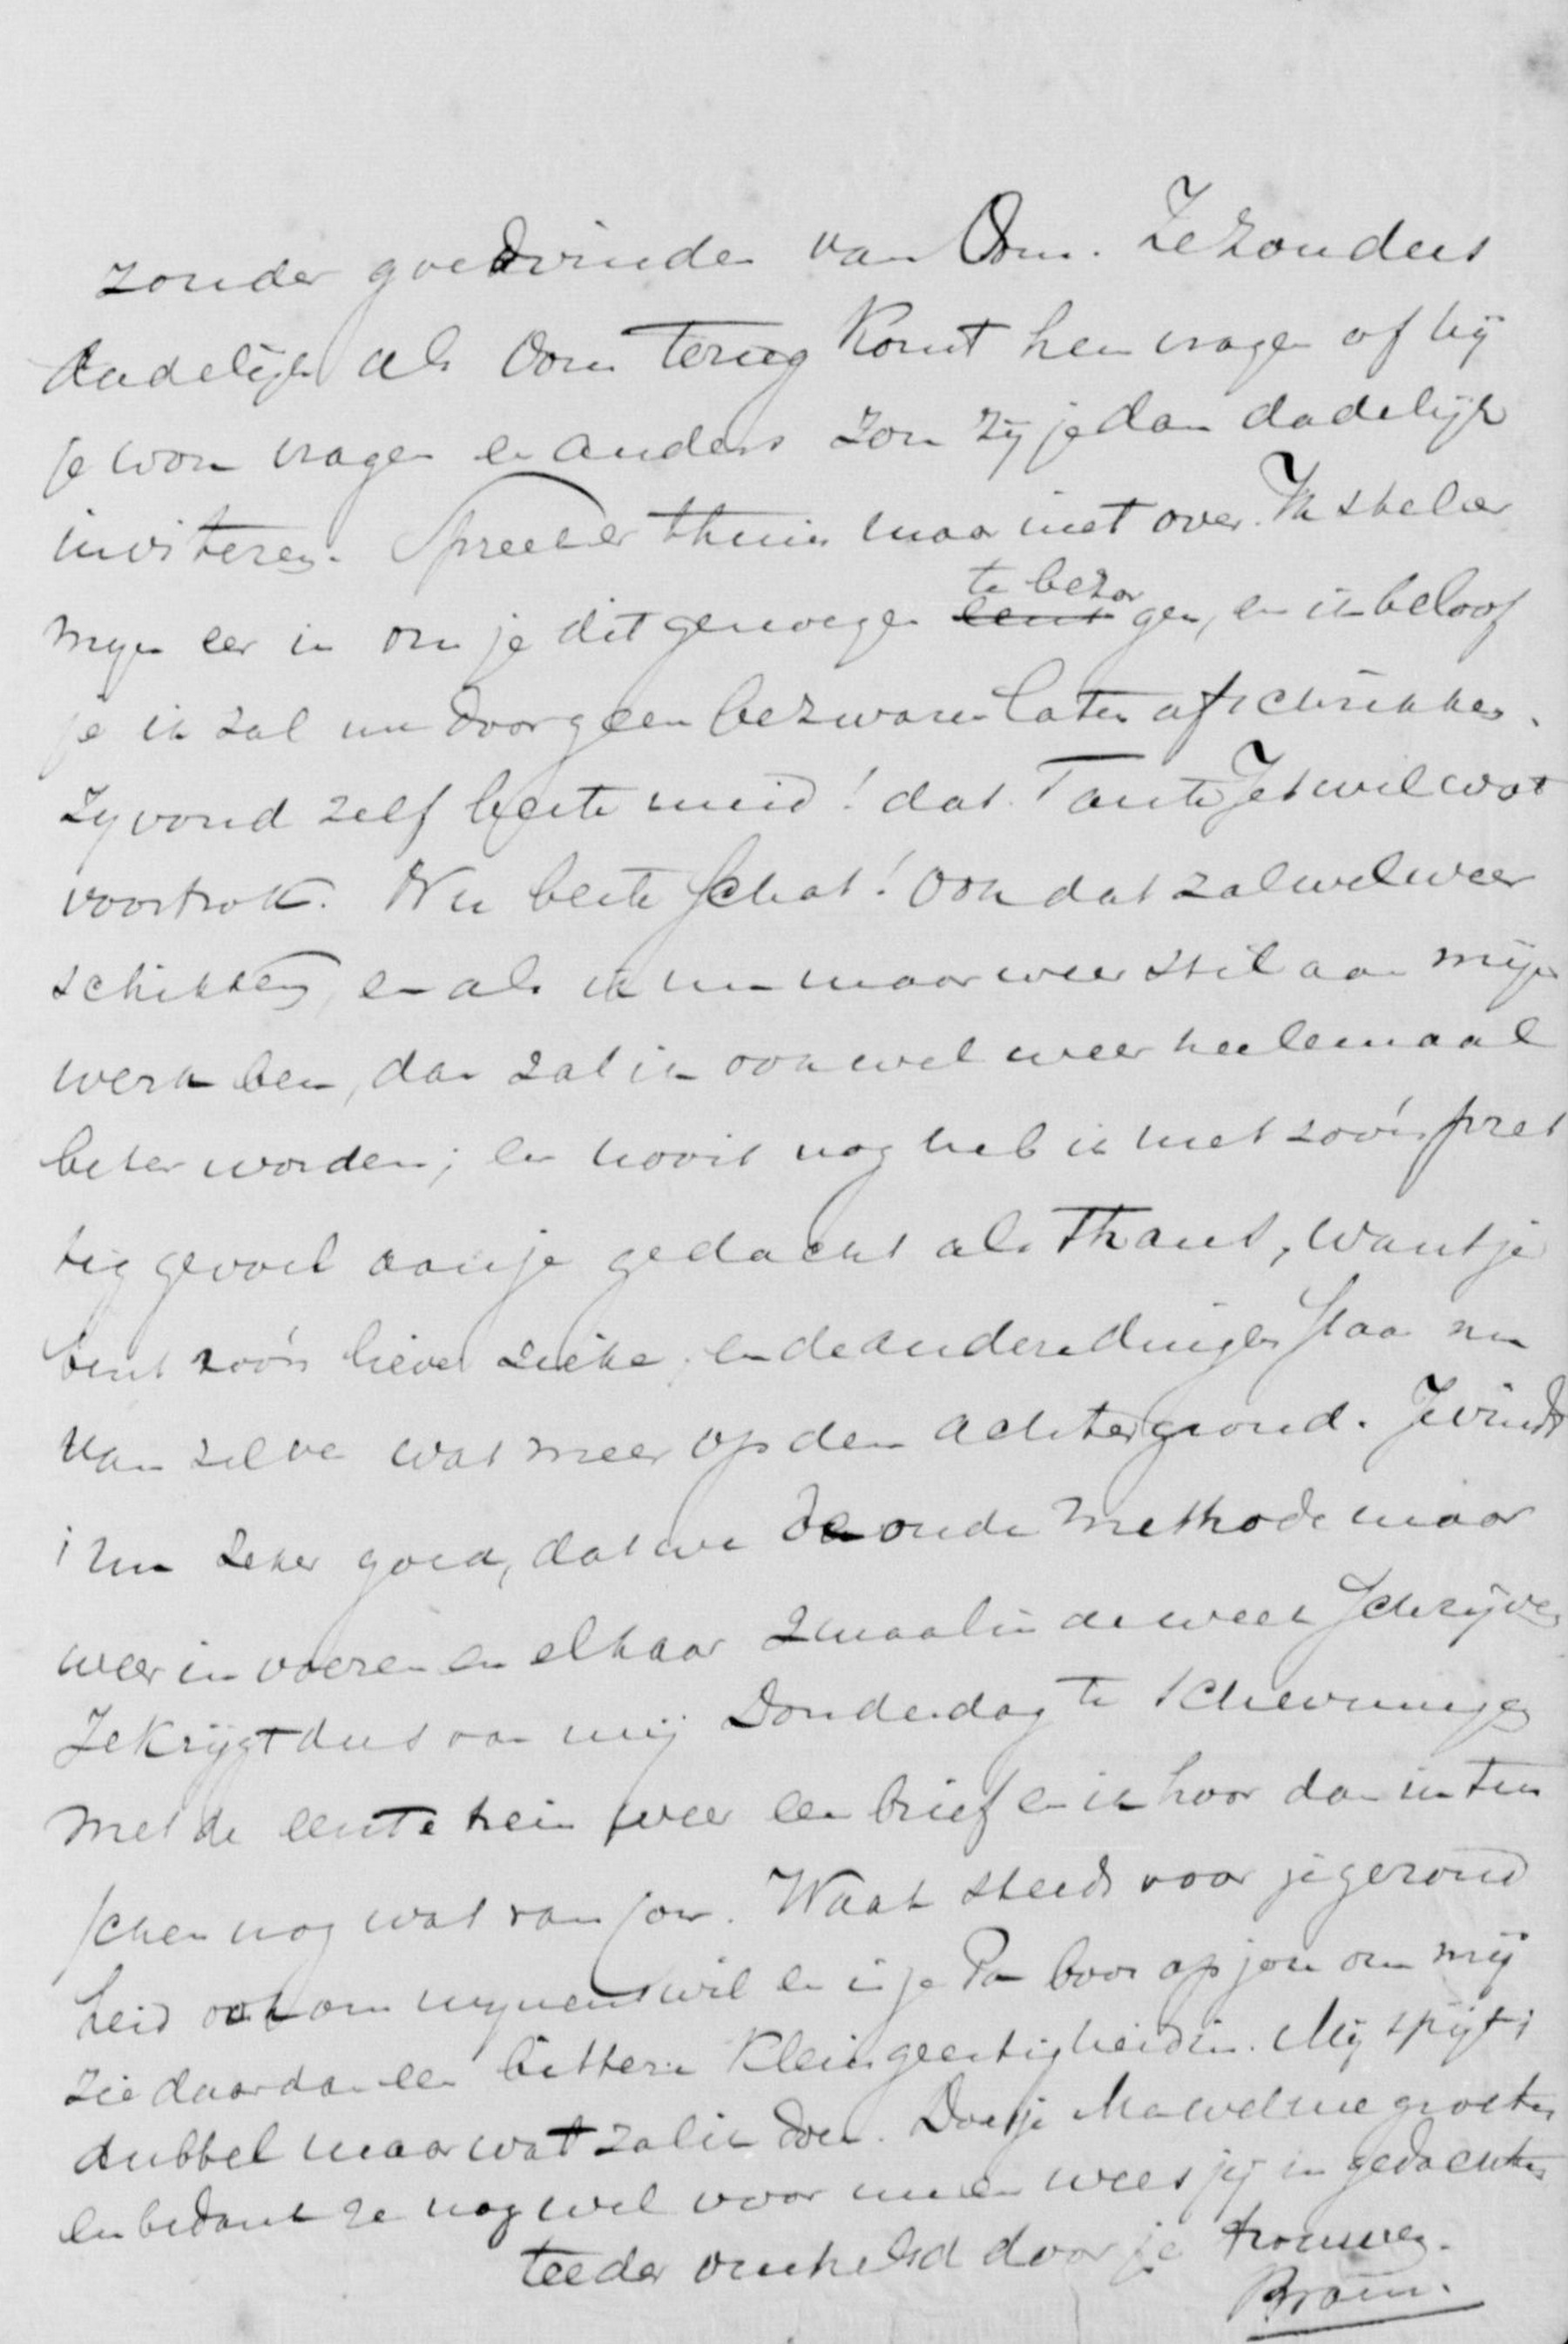 zonder goedvinden van Oom. Ze zou dus
dadelijk als Oom terug komt hem vragen of hij
je wou vragen en anders zou zij je dan dadelijk
inviteren. Spreek er thuis maar niet over. Ik stel er
mijn eer in om je dit genoegen te bezorgen, en ik beloof
je ik zal me door geen bezwaren laten afschrikken.
Zij vond zelf beste meid! dat Tante Jet wil wat
voortrok. Nu beste schat! Ook dat zal wel weer
schikken, en als ik nu maar weer stil aan mijn
werk ben, dan zal ik ook wel weer heelemaal
beter worden; en nooit nog heb ik met zoo'n pret
tig gevoel aan je gedacht als thans, want je
bent zoo'n lieve zieke, en de andere dingen staan nu
van zelve wat meer op den achtergrond. Je vindt
't nu zeker goed, dat we de oude methode maar
weer invoeren en elkaar 2 maal in de week schrijven
Je krijgt dus van mij Donderdag te Scheveningen
met de eerste trein weer een brief en ik hoor dan intus
schen nog wat van jou. Waak steeds voor je gezond
heid ook om mijnentwil en is je Pa boos op jou om mij
zie daar dan een bittere kleingeestigheid in. Mij spijt 't
dubbel maar wat zal ik doen. Doe je Ma wel me groeten
en bedank ze nog wel voor me en wees jij in gedachten
teeder omhelsd door je trouwen.
Bram.